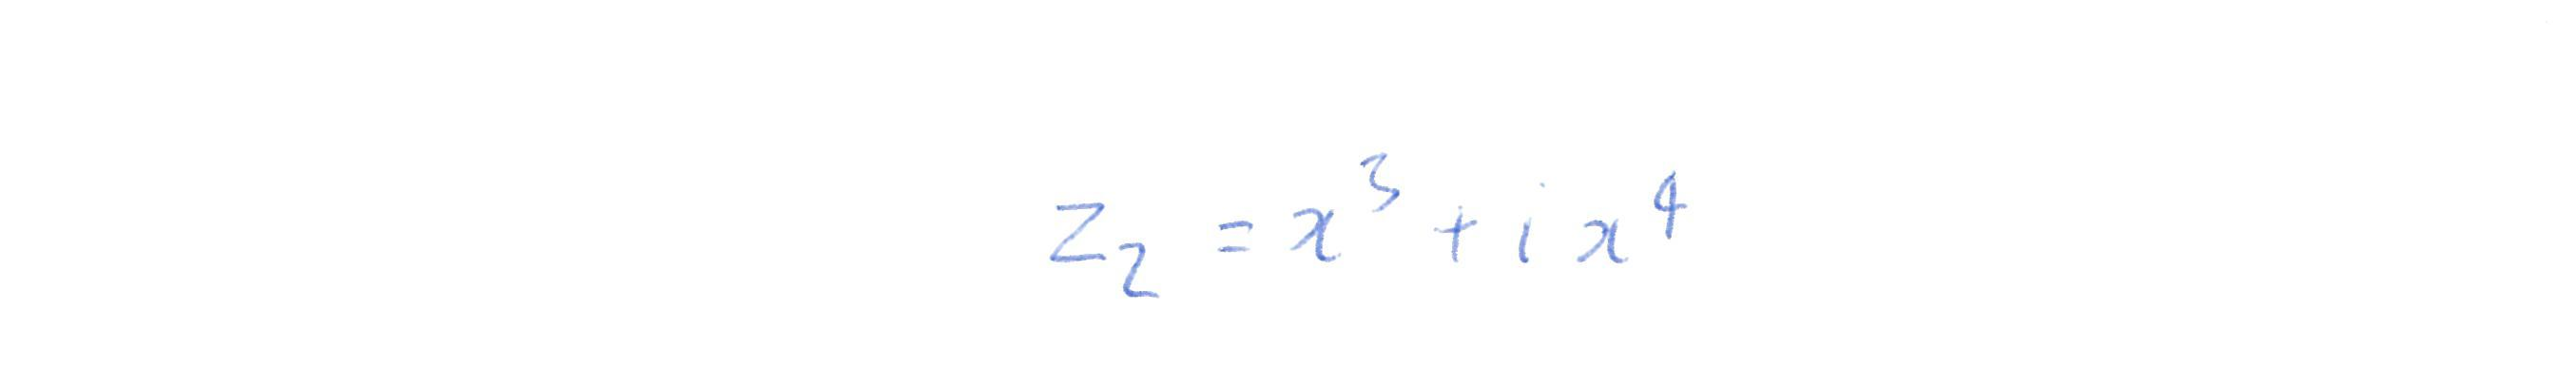 z₂ = x³ + i x⁴